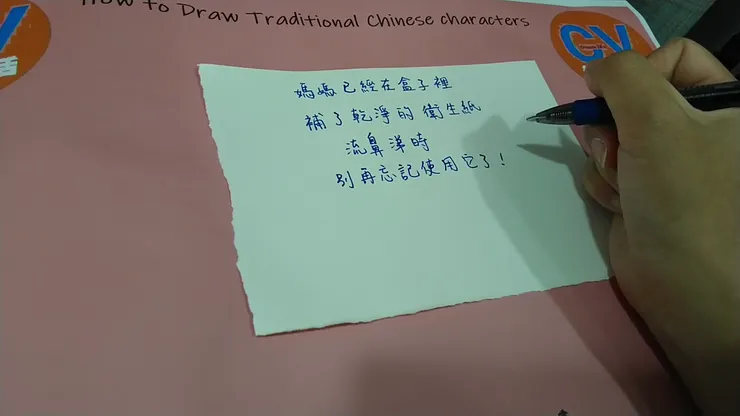 How to Draw Traditional Chinese characters
媽媽已經在盒子裡
補了乾淨的衛生紙
流鼻涕時
別再忘記使用它了!
CV